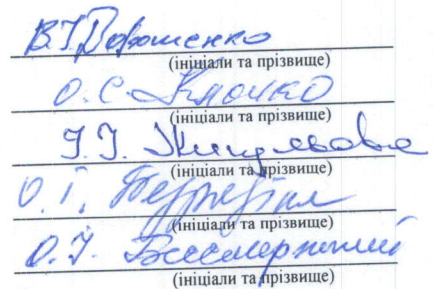 В.І. Дорошенко
(ініціали та прізвище)
О.С. Клочко
(ініціали та прізвище)
І.І.
(ініціали та прізвище)
О.І.
(ініціали та прізвище)
О.І. Бессмертний
(ініціали та прізвище)